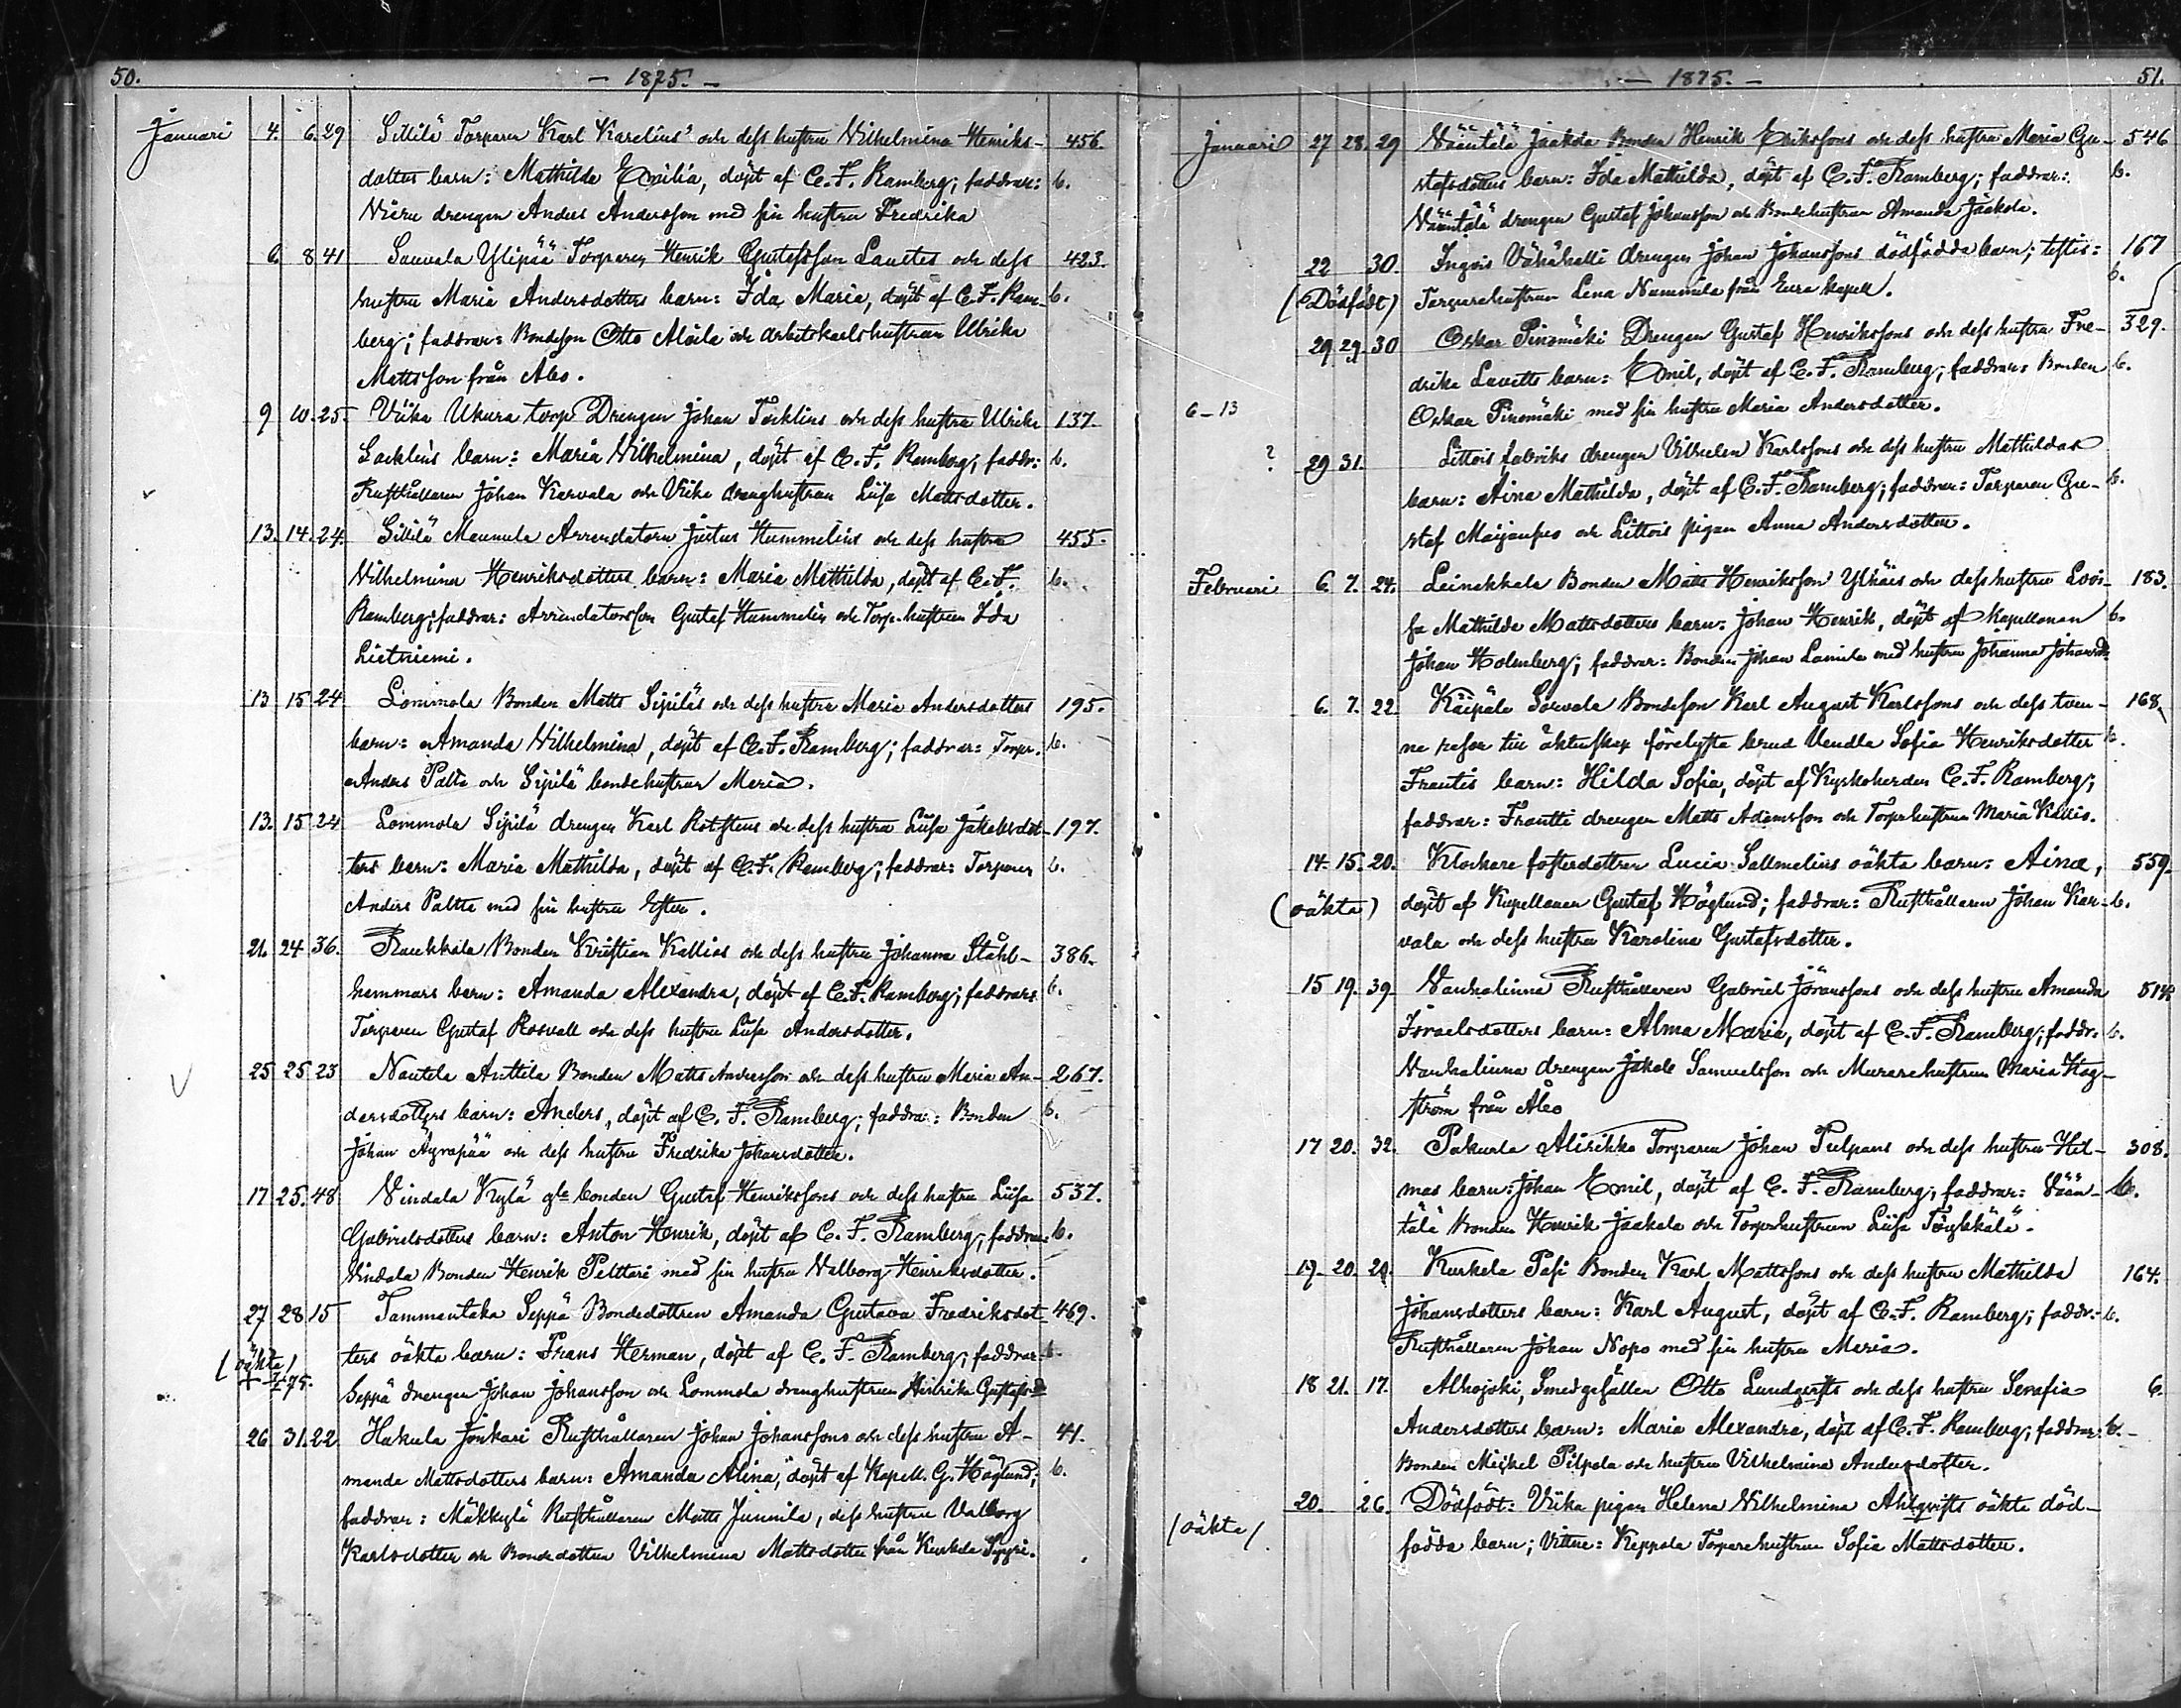 50. - 1875. -
Januari 4. 6. 29 Sillilä Torparen Karl Karelius' och dess hustru Vilhelmina Henriks- 456.
dotters barn: Mathilda Emilia, döpt af C. F. Ramberg; faddrar: b.
drengen Anders Andersson med sin hustru Fredrika
6. 8 41 Sauvala Ylipää Torparen Henrik Gustafsson Lauetes och dess 423.
hustru Maria Andersdotters barn: Ida Maria, döpt af C. F. Ram- b.
berg; faddrar: Bondeson Otto Aloila och arbetskarlshustrun Ulrika
Mattsson från Åbo.
9 10. 25. Viika Ukura torp Drengen Johan och dess hustru Ulrika 137.
barn: Maria Vilhelmina, döpt af C. F. Ramberg; faddr: b.
Rusthållaren Johan Karvala och Viika drenghustrun Liisa Mattsdotter.
13. 14. 24. Sillilä Maunula Arrendatorn Justus Hummelins och dess hustru 455.
Vilhelmina Henriksdotters barn: Maria Mathilda, döpt af C. F. b.
Ramberg; faddrar: Arrendatorsson Gustaf Hummelin och Torp. hustrun Ida
Lietniemi.
13 15 24 Lommola Bonden Matts Sipiläs och dess hustru Maria Andersdotters 195.
barn: Amanda Vilhelmina, döpt af C. F. Ramberg; faddrar: Torpr. b.
Anders Palta och Sipilä bondehustrun Maria.
13. 15 24 Lommola Sipilä drengen Karl Rotstens och dess hustru Liisa Jakobsdot- 197.
ters barn: Maria Mathilda, döpt af C. F. Ramberg; faddrar: Torparen b.
Anders Paltta med sin hustru Ester.
21. 24 36. Raukkala Bonden Kristian Kallios och dess hustru Johanna Stålh- 386.
hammars barn: Amanda Alexandra, döpt af C. F. Ramberg; faddrar: b.
Torparen Gustaf Rosvall och dess hustru Liisa Andersdotter.
25 25 23 Nautela Anttila Bonden Matts Andersson och dess hustru Maria An- 267.
dersdotters barn: Anders, döpt af C. F. Ramberg; faddrar: Bonden b.
Johan Äyräpää och dess hustru Fredrika Johansdotter.
17 25. 48 Vindala Kylä gle bonden Gustaf Henrikssons och dess hustru Liisa 537.
Gabrielsdotters barn: Anton Henrik, döpt af C. F. Ramberg; faddrar: b.
Vindala Bonden Henrik Pelttari med sin hustru Valborg Henriksdotter.
27 28 15 Tammentaka Seppä Bondedottren Amanda Gustava Fredriksdot- 469.
(oäkta) ters oäkta barn: Frans Herman, döpt af C. F. Ramberg; faddrar: b.
75. Seppä drengen Johan Johansson och Lommola drenghustrun Hinrika Gustafsd
26 31. 22 Hakula Jonkari Rusthållaren Johan Johanssons och dess hustru A- 41.
manda Mattsdotters barn: Amanda Alina, döpt af Kapell. G. Höglund; b.
faddrar: Mäkkylä Rusthållaren Matts Junnila, dess hustru Valborg
Karlsdotter och Bondedottren Vilhelmina Mattsdotter från Kurkela Syyri.
- 1875. - 51.
Januari 27 28. 29 Vääntelä Jaakola Bonden Henrik Erikssons och dess hustru Maria Gu- 546
stafsdotters barn: Ida Mathilda, döpt af C. F. Ramberg; faddrar: b.
Vääntälä drengen Gustaf Johansson och Bondehustrun Amanda Jaakola.
22 30. Ingois Vähähalli drengen Johan Johanssons dödfödda barn; testis: 167
(Dödfödt) Torparehustrun Lena Nummila från Eura kapell. b.
29 29. 30 Oskar Pinomäki Drengen Gustaf Henrikssons och dess hustru Fre- 329.
drika Lavetts barn: Emil, döpt af C. F. Ramberg; faddrar: Bonden b.
6-13 Oskar Pinomäki med sin hustru Maria Andersdotter.
? 29 31. Littois fabriks drengen Vilhelm Karlssons och dess hustru Mathildas
barn: Aina Mathilda, döpt af C. F. Ramberg; faddrar: Torparen Gu- b.
staf och Littois pigan Anna Andersdotter.
Februari 6. 7. 24. Leinakkala Bonden Matts Henriksson Yltiäis och dess hustru Lovi- 183.
sa Mathilda Mattsdotters barn: Johan Henrik, döpt af Kapellanen b.
Johan Holmberg; faddrar: Bonden Johan Lamila med hustru Johanna Johansd:
6. 7. 22. Käipälä Sorvala Bondeson Karl August Karlssons och dess tven- 168.
ne resor till äktenskap förelysta brud Vendla Sofia Henriksdotter b.
Frantis barn: Hilda Sofia, döpt af Kyrkoherden C. F. Ramberg;
faddrar: Frantti drengen Matts Adamsson och Torparhustrun Maria Kallis.
14. 15. 20. Klockare fosterdottren Lucia Sallmelins oäkta barn: Aina, 559.
(oäkta) döpt af Kapellanen Gustaf Höglund; faddrar: Rusthållaren Johan Kar- b.
vala och dess hustru Karolina Gustafsdotter.
15 19. 39. Vanhalinna Rusthållaren Gabriel Jöranssons och dess hustru Amanda 514.
Israelsdotters barn: Alma Maria, döpt af C. F. Ramberg; faddr: b.
Vanhalinna drengen Jakob Samuelsson och Murarehustrun Maria Hag-
ström från Åbo
17 20. 32. Pakurla Alirihko Torparen Johan Tulpans och dess hustru Hil- 308.
mas barn: Johan Emil, döpt af C. F. Ramberg; faddrar: Vään- b.
tälä Bonden Henrik Jaakola och Torparhustrun Liisa
19. 20. 29. Kurkela Pasi Bonden Karl Mattssons och dess hustru Mathilda 164.
Johansdotters barn: Karl August, döpt af C. F. Ramberg; faddr: b.
Rusthållaren Johan Nopo med sin hustru Maria.
18 21. 17. Alhojoki, Smedgesällen Otto Lundqvists och dess hustru Serafia 6.
Andersdotters barn: Maria Alexandra, döpt af C. F. Ramberg; faddrar: b.
Bonden Mickel Pilpola och hustru Vilhelmina Andersdotter.
20. 26. Dödfödt: Viika pigan Helena Vilhelmina Ahlqvists oäkta död-
(oäkta) födda barn; Vittne: Keppola Torparehustrun Sofia Mattsdotter.